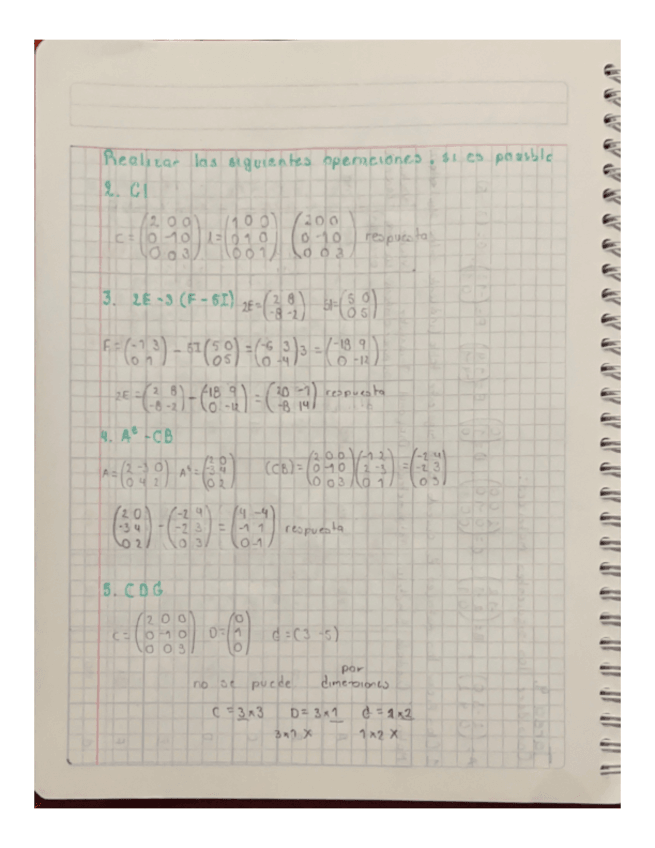 Realizar las siguientes operaciones, si es posible
2. CI
C = (2 0 0 / 0 -1 0 / 0 0 3) I = (1 0 0 / 0 1 0 / 0 0 1) (2 0 0 / 0 -1 0 / 0 0 3) respuesta
3. 2E - 3 (F - 5I) 2E = (2 8 / -8 -2) 5I = (5 0 / 0 5)
F = (-1 3 / 0 1) - 5I (5 0 / 0 5) = (-6 3 / 0 -4) 3 = (-18 9 / 0 -12)
2E = (2 8 / -8 -2) - (-18 9 / 0 -12) = (20 -1 / -8 14) respuesta
4. Aᵗ - CB
A = (2 -3 0 / 0 4 2) Aᵗ = (2 0 / -3 4 / 0 2) (CB) = (2 0 0 / 0 -1 0 / 0 0 3) (-1 2 / 2 -3 / 0 1) = (-2 4 / -2 3 / 0 3)
(2 0 / -3 4 / 0 2) - (-2 4 / -2 3 / 0 3) = (4 -4 / -1 1 / 0 -1) respuesta
5. CDG
C = (2 0 0 / 0 -1 0 / 0 0 3) D = (0 / 1 / 0) d = (3 -5)
no se puede por dimensiones
C = 3x3 D = 3x1 d = 1x2
3x1 x 1x2 x